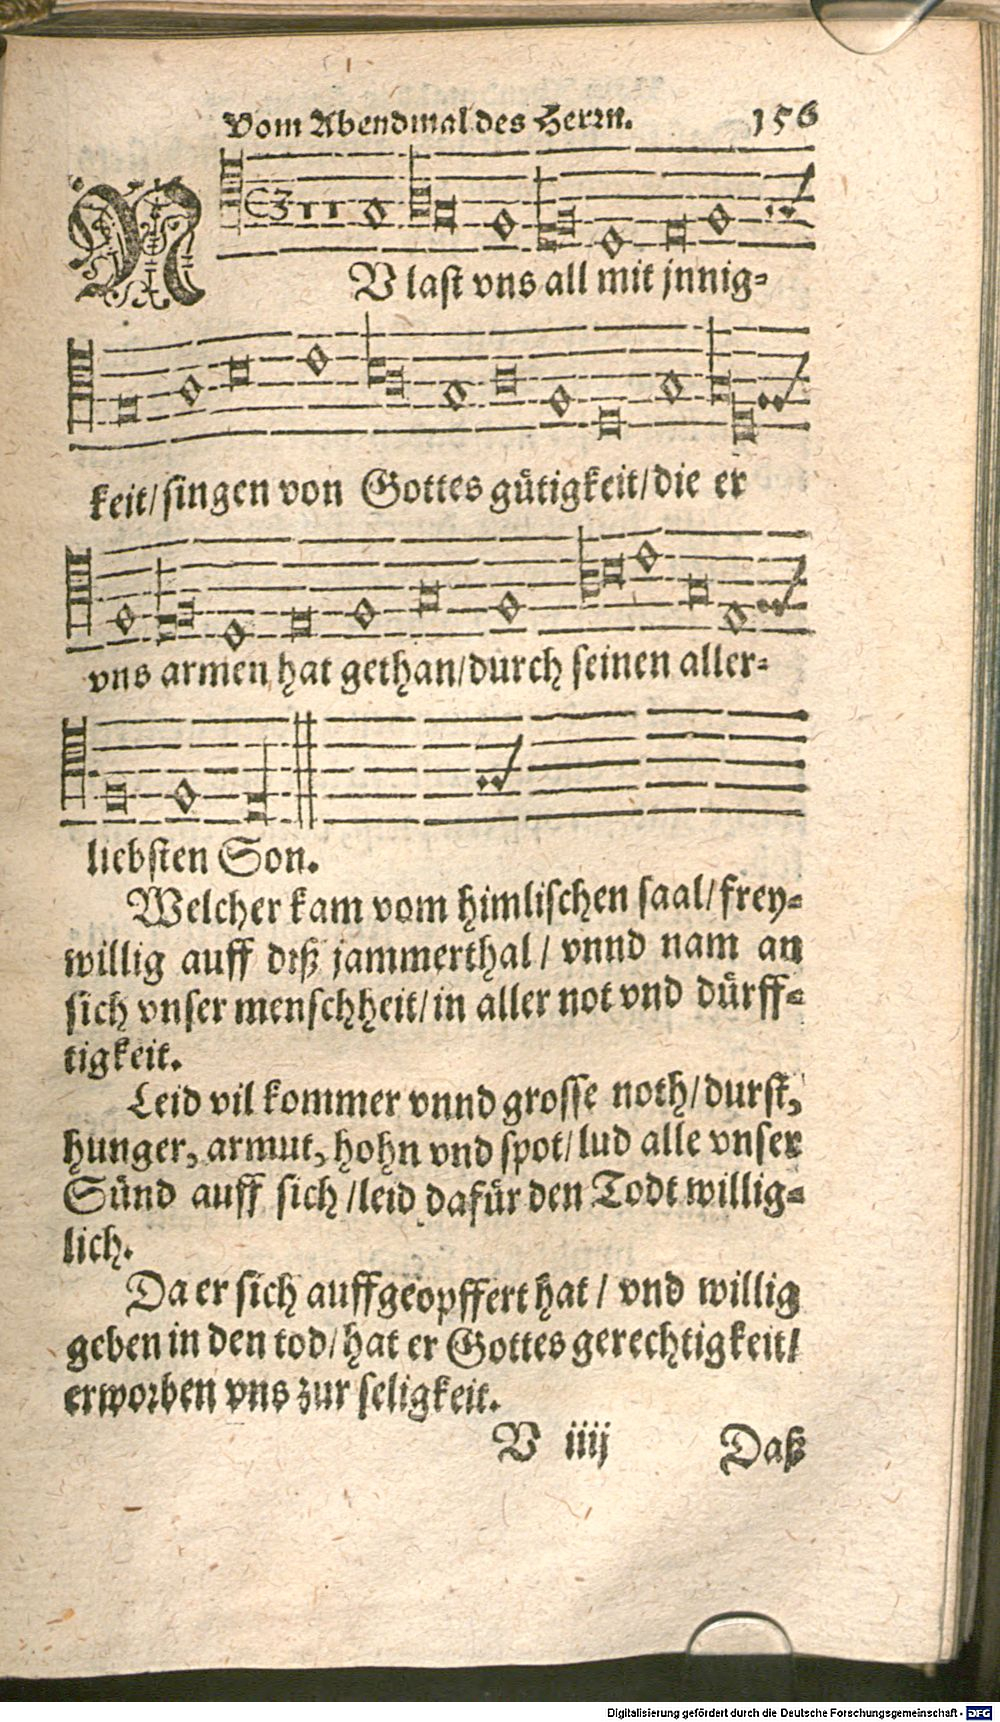 Vom Abendmal des Herrn. 156
NV last vns all mit jnnig-
keit/ singen von Gottes gütigkeit/ die er
vns armen hat gethan/ durch seinen aller-
liebsten Son.
Welcher kam vom himlischen saal/ frey-
willig auff diß jammerthal/ vnnd nam an
sich vnser menschheit/ in aller not vnd dürff-
tigkeit.
Leid vil kommer vnnd grosse noth/ durst,
hunger, armut, hohn vnd spot/ lud alle vnser
Sünd auff sich/ leid dafür den Todt willig-
lich.
Da er sich auffgeopffert hat/ vnd willig
geben in den tod/ hat er Gottes gerechtigkeit/
erworben vns zur seligkeit.
V iiij Daß
Digitalisierung gefördert durch die Deutsche Forschungsgemeinschaft - DFG